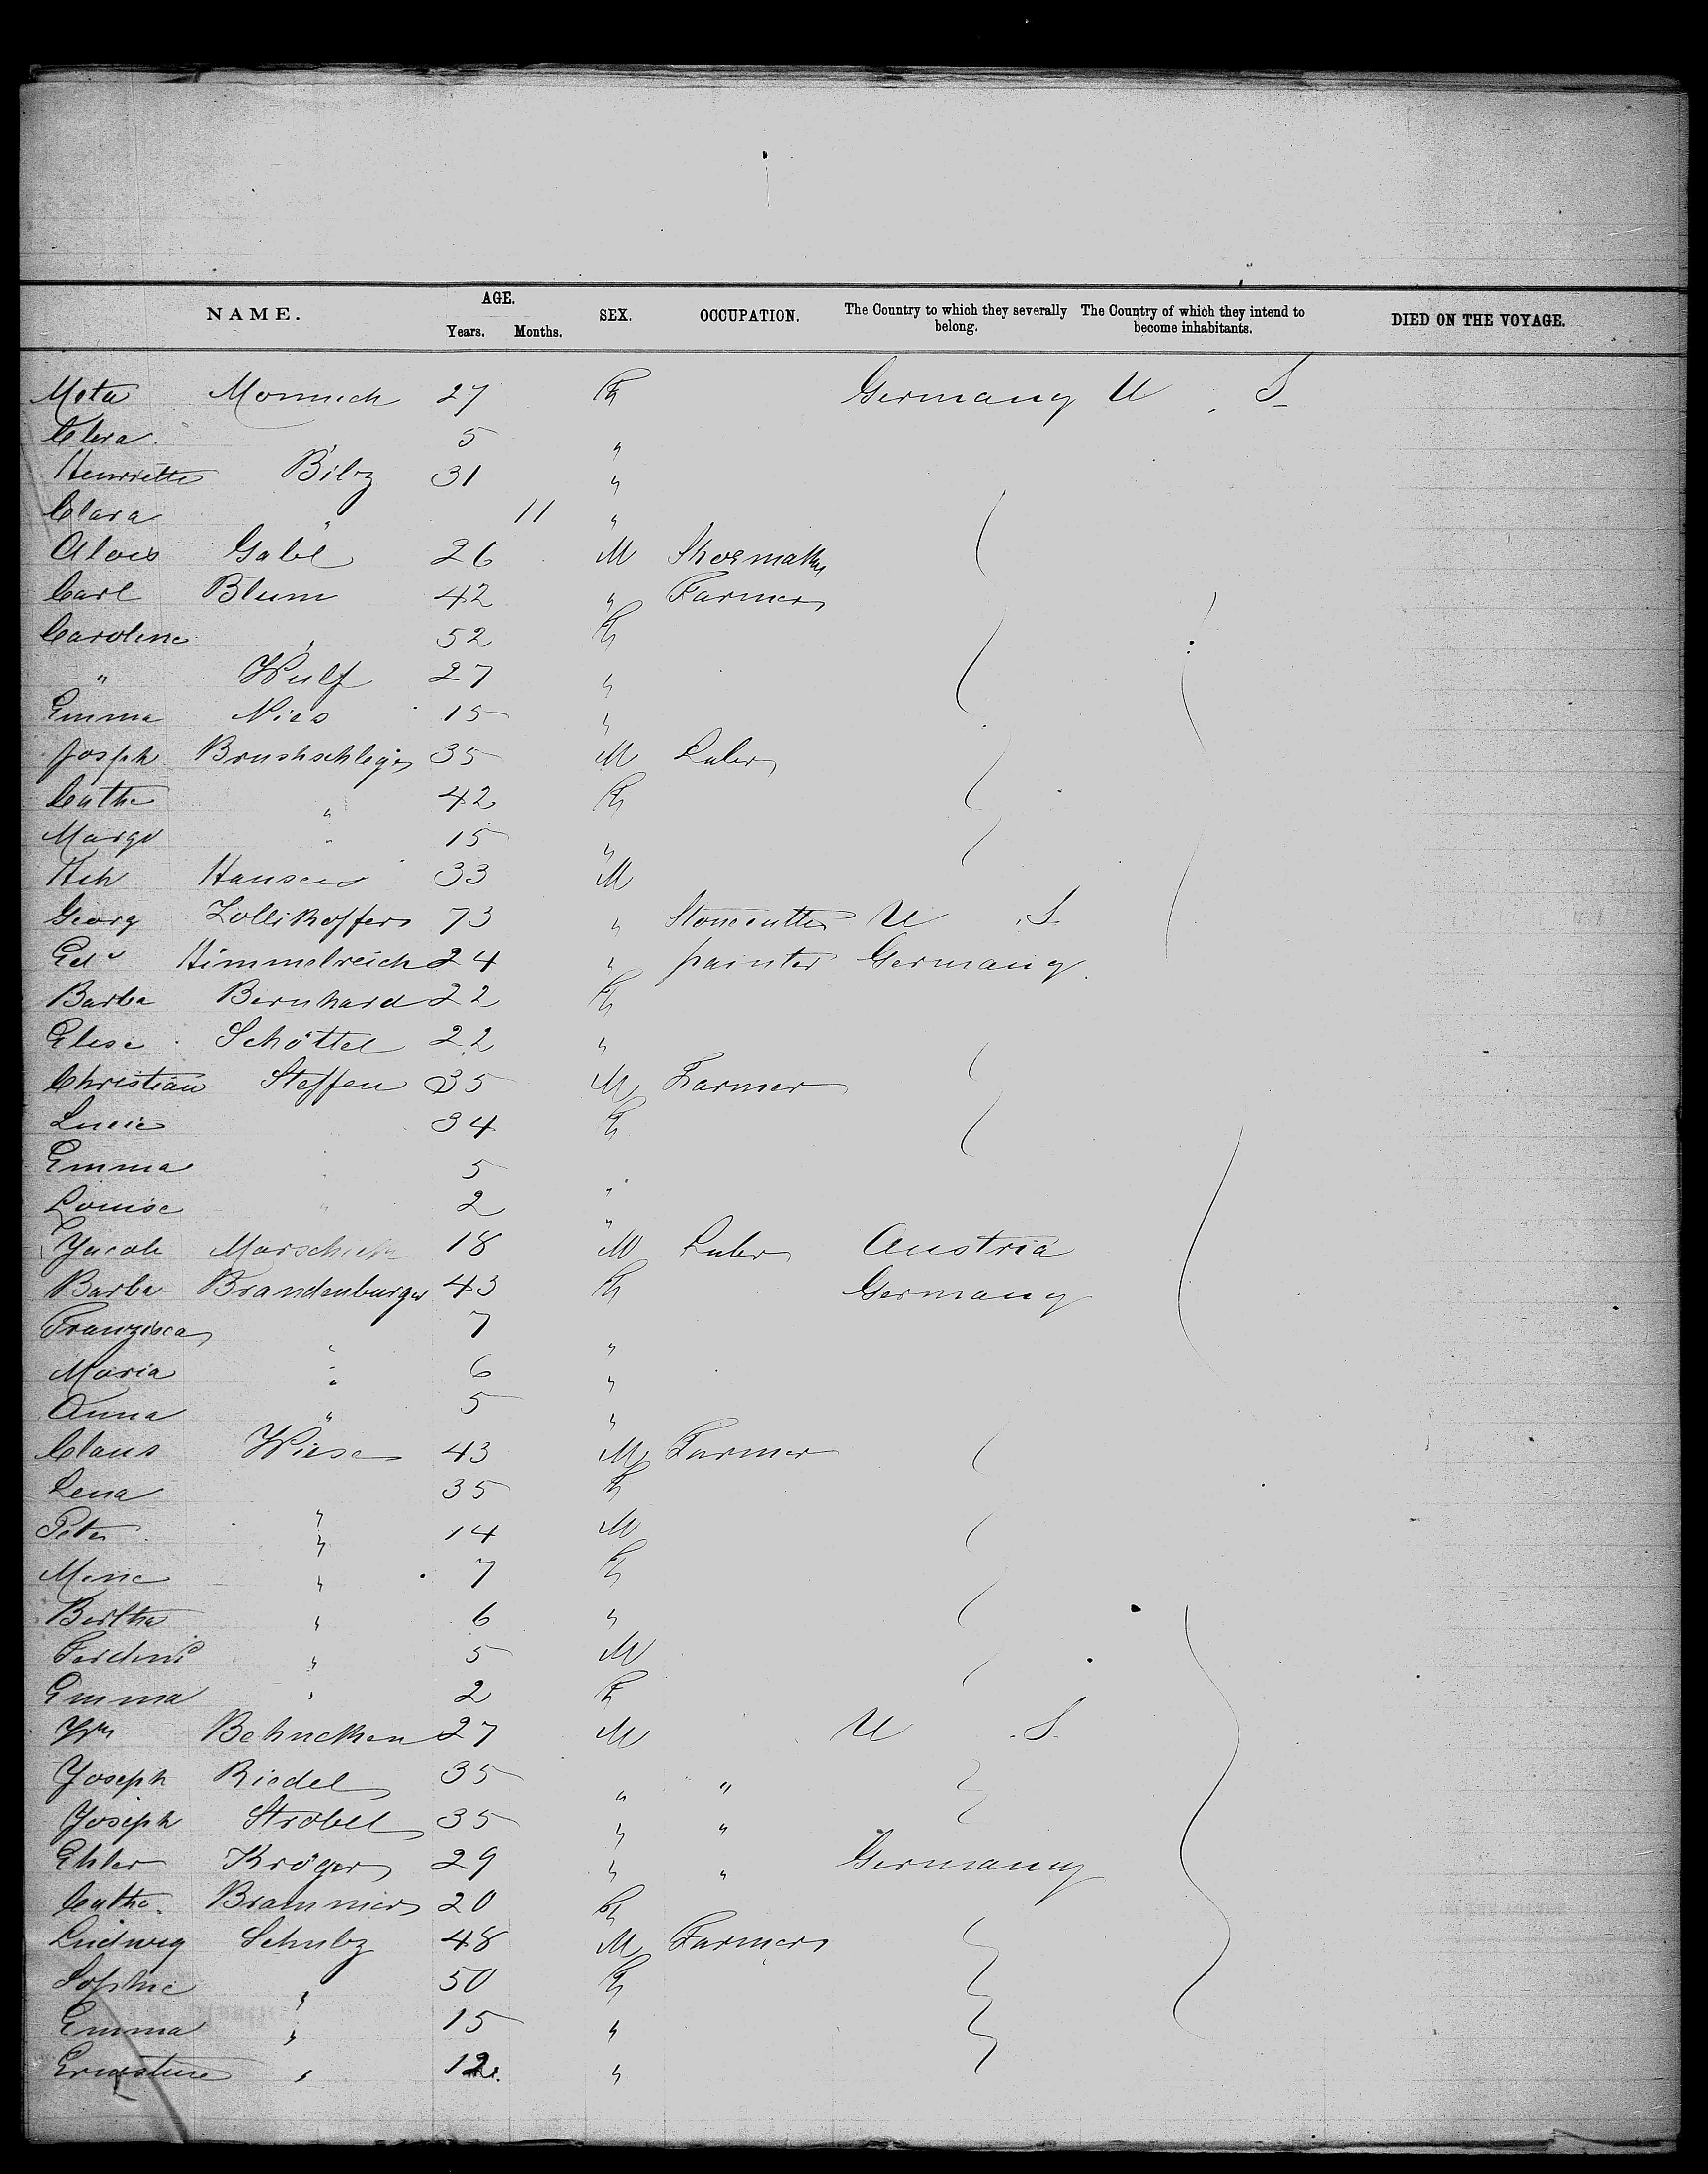 NAME. AGE. SEX. OCCUPATION. The Country to which they severally belong. The Country of which they intend to become inhabitants. DIED ON THE VOYAGE.
Years. Months.
Meta Monnich 27 F Germany U. S.
Clara 5 "
Henriette Bilz 31 "
Clara " 11 "
Alois Gabl 26 M Shoemaker
Carl Blum 42 " Farmer
Caroline " 52 F
" Wulf 27 "
Emma Nies 15 "
Joseph 35 M Labr
Cathe " 42 F
Margt " 15 "
Hch Hansen 33 M
Georg Zollikoffer 73 " Stonecutter U S.
Edd Himmelreich 24 " painter Germany
Barba Bernhard 22 F
Elise Schöttel 22 "
Christian Steffen 35 M Farmer
Lucie 34 F
Emma 5
Louise " 2 "
Jacob 18 M Labr Austria
Barba Brandenburger 43 F Germany
Franzisca " 7 "
Maria " 6 "
Anna " 5 "
Claus Wiese 43 M Farmer
Lena " 35 F
Peter " 14 M
Mine " 7 F
Bertha " 6 "
Ferdind " 5 M
Emma " 2 F
Wm Behncken 27 M U. S.
Joseph Riedel 35 " "
Joseph Strobel 35 " "
Ehler Kröger 29 " " Germany
Cathe. Brammer 20 F
Ludwig Schulz 48 M Farmer
Sophie " 50 F
Emma " 15 "
Ernestine " 12 "